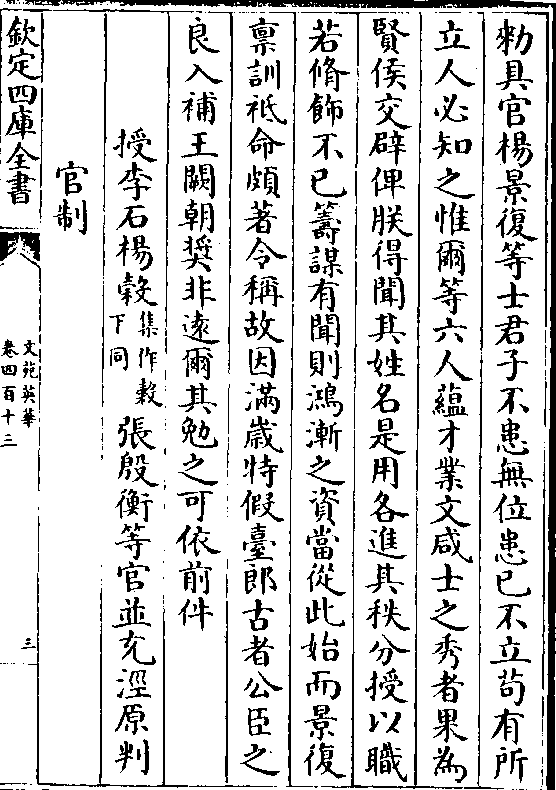 勑具官楊景復等士君子不患無位患已不立苟有所
立人必知之惟爾等六人蘊才業文咸士之秀者果為
賢侯交辟俾朕得聞其姓名是用各進其秩分授以職
若脩飾不已籌謀有聞則鴻漸之資當從此始而景復
禀訓祗命頗著令稱故因滿歲特假臺郎古者公臣之
良入補王闕朝奬非遠爾其勉之可依前件
授李石楊㲄集作穀下同張殷衡等官並充涇原判
官制
欽定四庫全書
文苑英華
卷四百十三
三